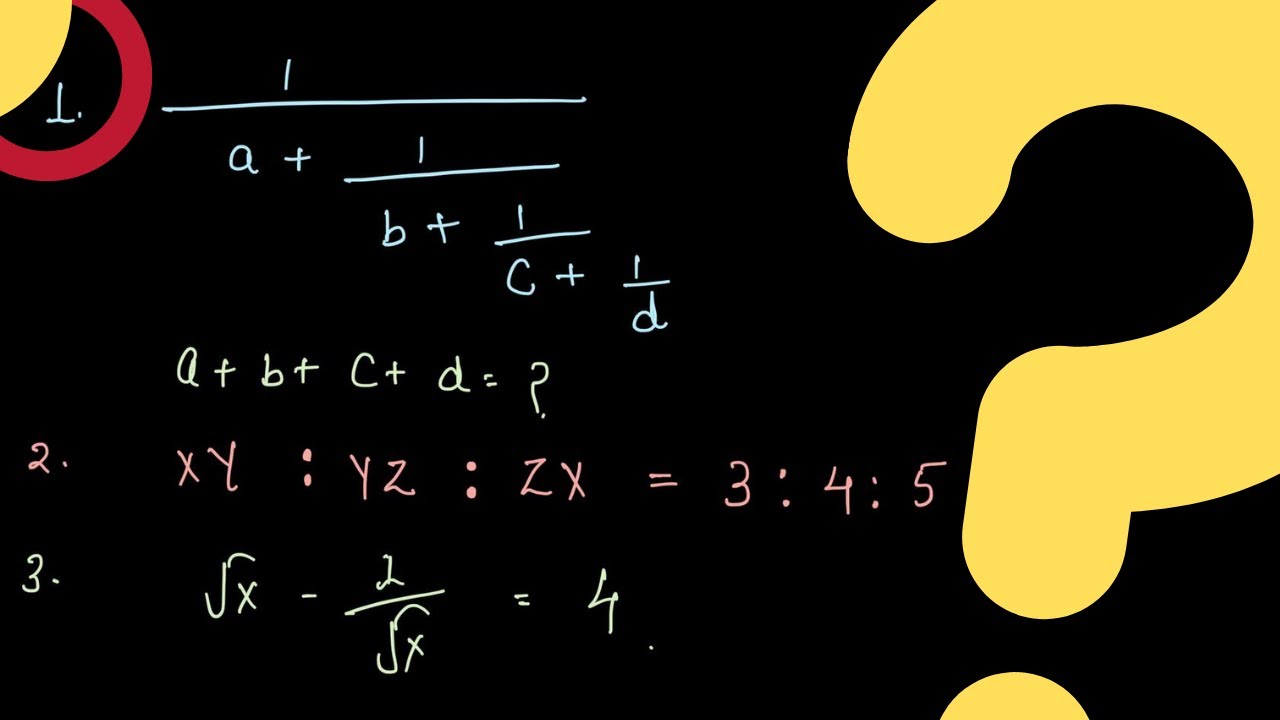 1. 1
a + 1
b + 1
C + 1
d
a + b + C + d = ?
2. XY : YZ : ZX = 3 : 4 : 5
3. √x - 1/√x = 4.